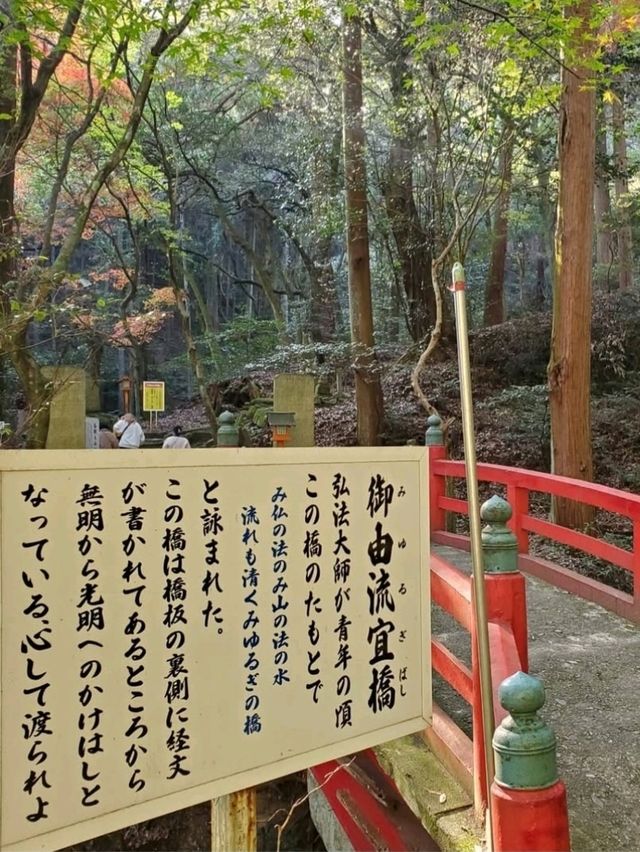 御由流宜橋
みゆるぎばし
弘法大師が青年の頃
この橋のたもとで
み仏の法のみ山の法の水
流れも清くみゆるぎの橋
と詠まれた。
この橋は橋板の裏側に経文
が書かれてあるところから
無明から光明へのかけはしと
なっている、心して渡られよ